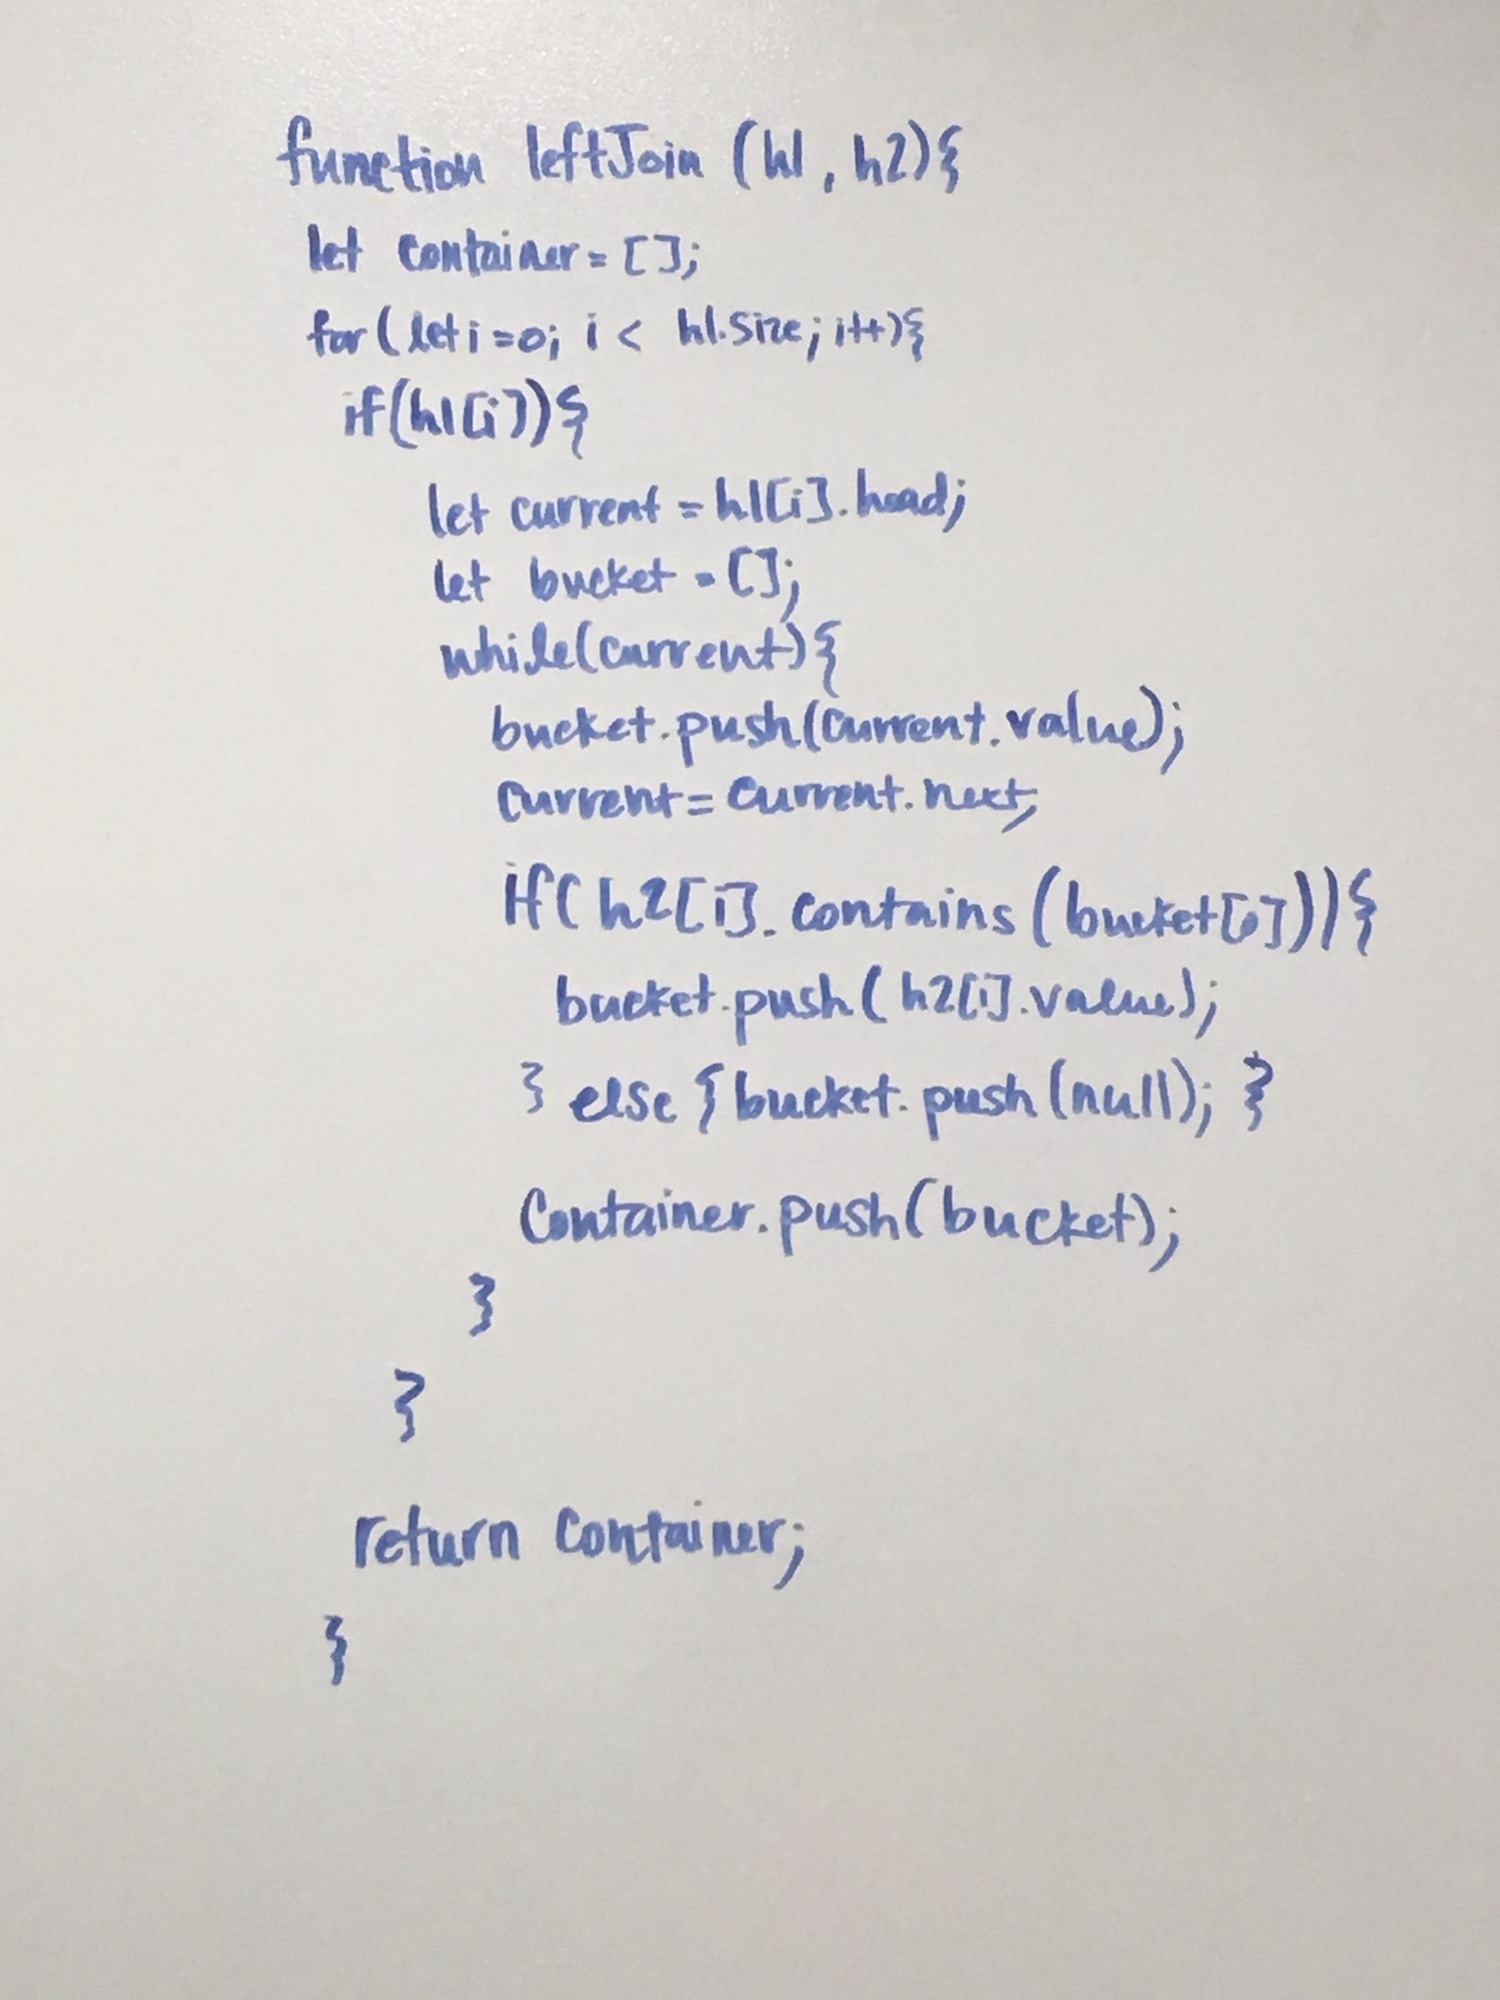 function leftJoin (h1, h2){
let container = [];
for (let i=0; i < h1.size; i++){
if(h1[i]){
let current = h1[i].head;
let bucket = [];
while(current){
bucket.push(current.value);
current = current.next;
if(h2[i].contains(bucket[0])){
bucket.push(h2[i].value);
} else {bucket.push(null); }
Container.push(bucket);
}
}
return container;
}